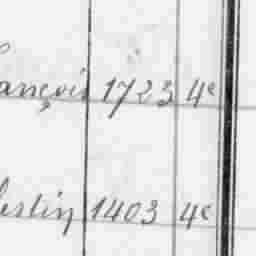 ançois 1723 4e
lestin 1403 4e